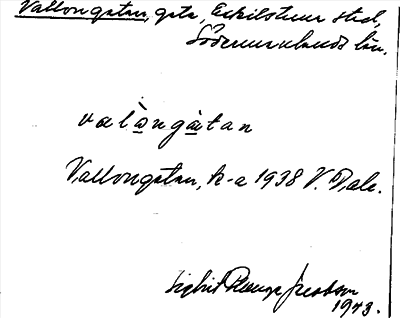 Vallongatan, gata, Eskilstuna stad,
Södermanlands län.
valångatan
Vallongatan, k-a 1938 V. Dale.
Sigbrit Plenge Jacobson
1973.